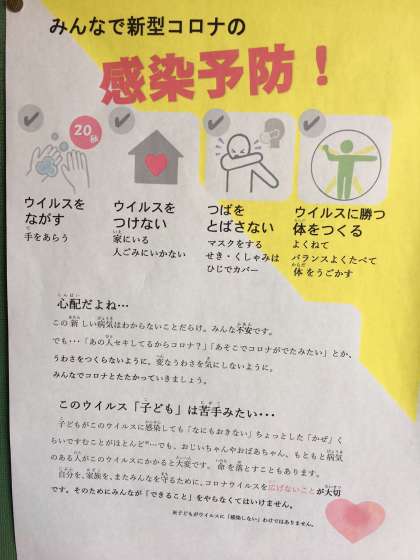 みんなで新型コロナの
感染予防！
20秒
ウイルスを
ながす
手をあらう
ウイルスを
つけない
家にいる
人ごみにいかない
つばを
とばさない
マスクをする
せき・くしゃみは
ひじでカバー
ウイルスに勝つ
体をつくる
よくねて
バランスよくたべて
体をうごかす
心配だよね…
この新しい病気はわからないことだらけ。みんな不安です。
でも…「あの人セキしてるからコロナ？」「あそこでコロナがでたみたい」とか、
うわさをつくらないように、変なうわさを気にしないように。
みんなでコロナとたたかっていきましょう。
このウイルス「子ども」は苦手みたい…
子どもがこのウイルスに感染しても「なにもおきない」ちょっとした「かぜ」く
らいですむことがほとんど※…でも、おじいちゃんやおばあちゃん、もともと病気
のある人がこのウイルスにかかると大変です。命を落とすこともあります。
自分を、家族を、またみんなを守るために、コロナウイルスを広げないことが大切
です。そのためにみんなが「できること」をやらなくてはいけません。
※子どもがウイルスに「感染しない」わけではありません。